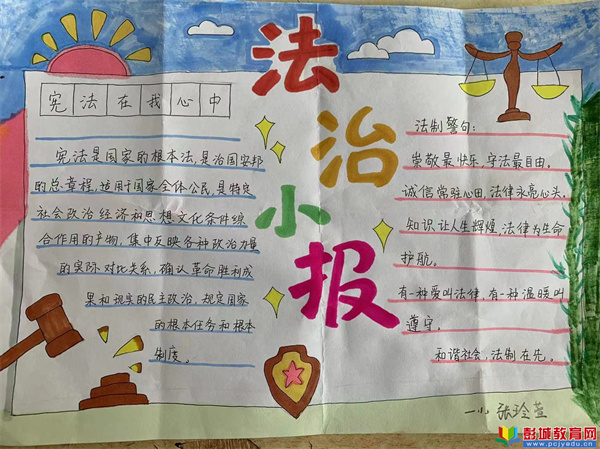 法治小报
宪法在我心中
宪法是国家的根本法,是治国安邦
的总章程,适用于国家全体公民,是特定
社会政治经济和思想文化条件综
合作用的产物,集中反映各种政治力量
的实际对比关系,确认革命胜利成
果和现实的民主政治,规定国家
的根本任务和根本
制度。
法制警句:
崇敬最快乐,守法最自由。
诚信常驻心田,法律永亮心头,
知识让人生辉煌,法律为生命
护航。
有一种爱叫法律,有一种温暖叫
遵守。
和谐社会,法制在先。
一小 张玲萱
彭城教育网
www.pcjyedu.cn